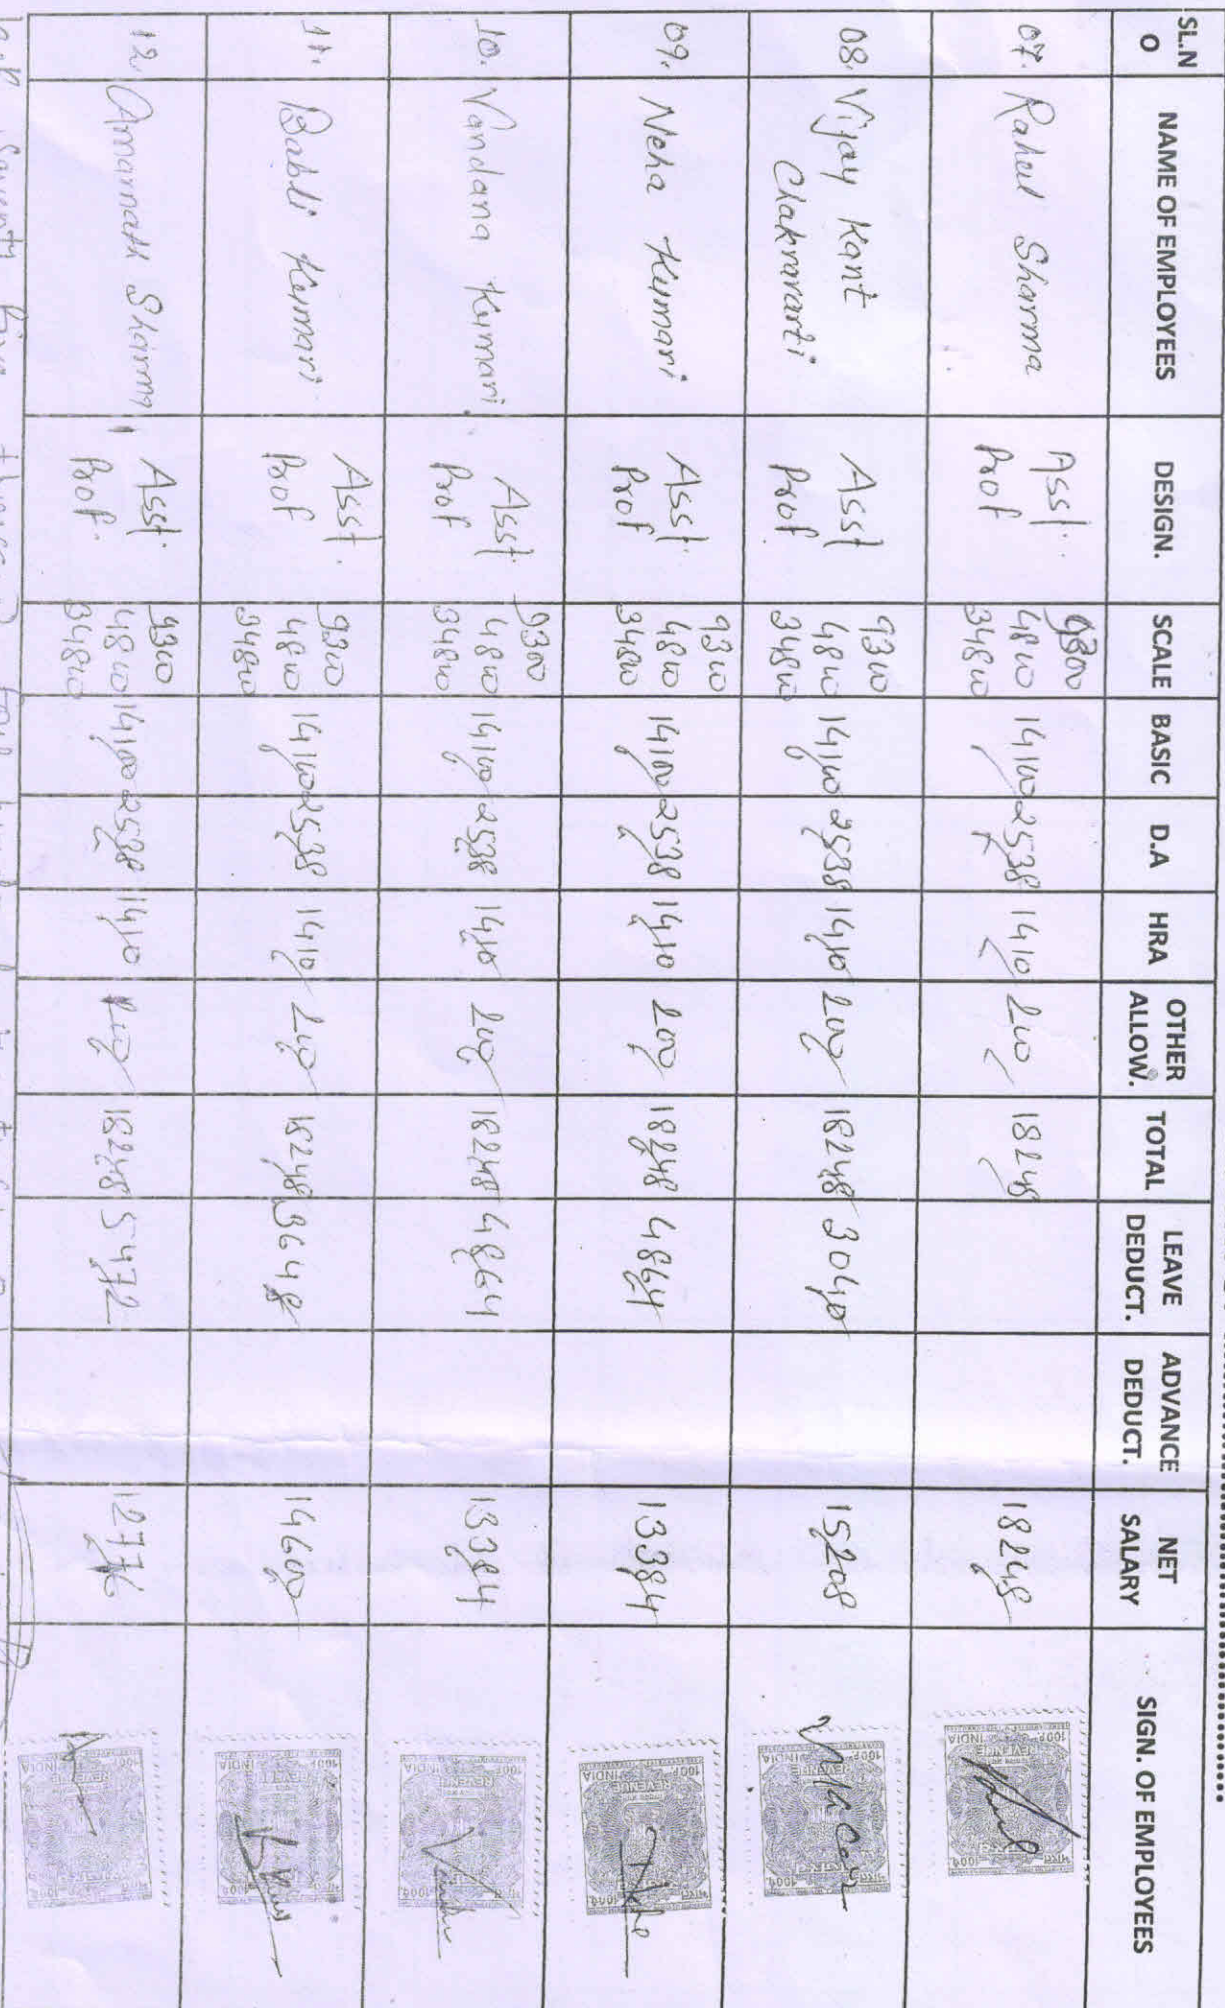 SL.NO NAME OF EMPLOYEES DESIGN. SCALE BASIC D.A HRA OTHER ALLOW. TOTAL LEAVE DEDUCT. ADVANCE DEDUCT. NET SALARY SIGN. OF EMPLOYEES
07. Rahul Sharma Asst. Prof 9300 4800 34800 14100 2538 1410 200 18248 18248
08. Vijay Kant Chakravarti Asst Prof 9300 4800 34800 14100 2538 1410 200 18248 3040 15208
09. Neha Kumari Asst. Prof 9300 4800 34800 14100 2538 1410 200 18248 4864 13384
10. Vandana Kumari Asst. Prof 9300 4800 34800 14100 2538 1410 200 18248 4864 13384
11. Babli Kumari Asst. Prof 9300 4800 34800 14100 2538 1410 200 18248 3648 14600
12. Amarnath Sharma Asst. Prof. 9300 4800 34800 14100 2538 1410 200 18248 5472 12776